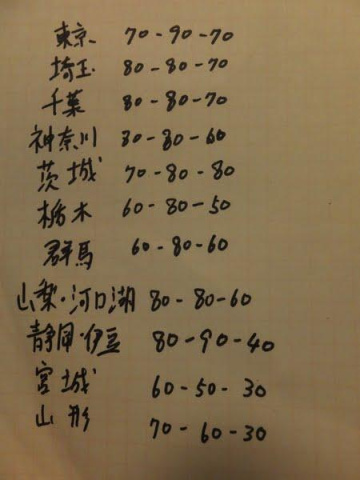 東京 70-90-70
埼玉 80-80-70
千葉 80-80-70
神奈川 30-80-60
茨城 70-80-80
栃木 60-80-50
群馬 60-80-60
山梨・河口湖 80-80-60
静岡・伊豆 80-90-40
宮城 60-50-30
山形 70-60-30